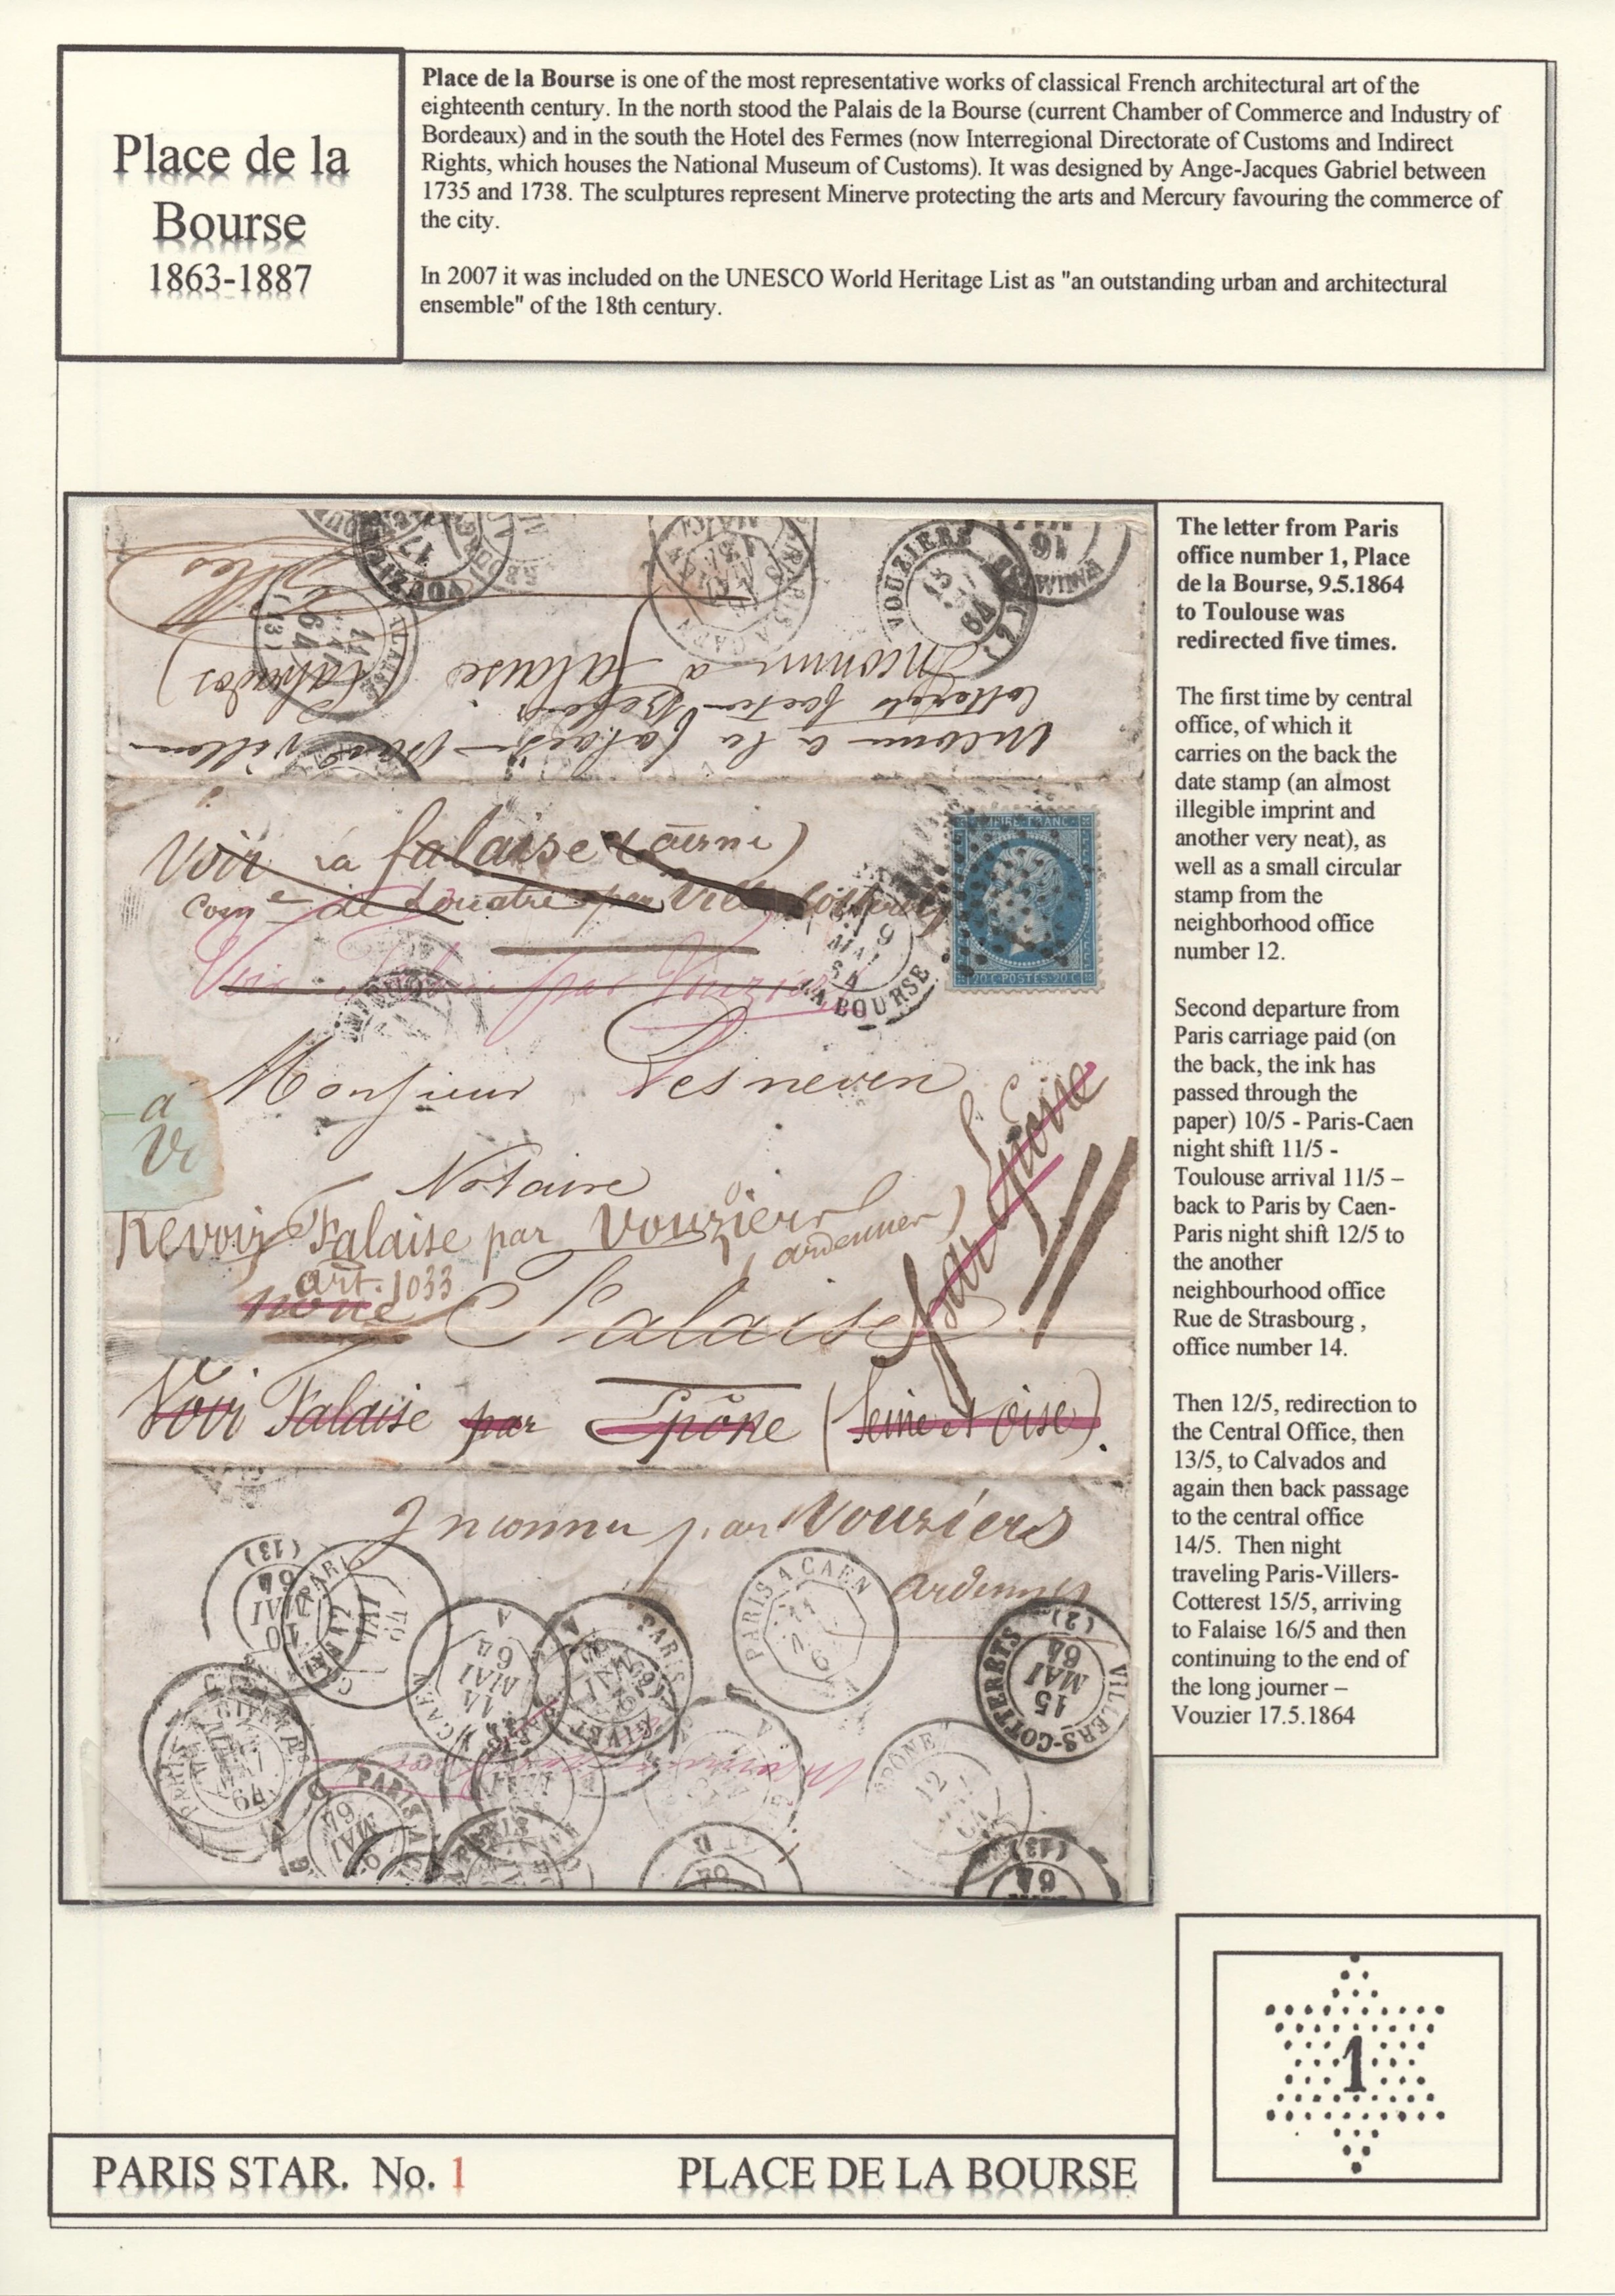 Place de la
Bourse
1863-1887
Place de la Bourse is one of the most representative works of classical French architectural art of the
eighteenth century. In the north stood the Palais de la Bourse (current Chamber of Commerce and Industry of
Bordeaux) and in the south the Hotel des Fermes (now Interregional Directorate of Customs and Indirect
Rights, which houses the National Museum of Customs). It was designed by Ange-Jacques Gabriel between
1735 and 1738. The sculptures represent Minerve protecting the arts and Mercury favouring the commerce of
the city.
In 2007 it was included on the UNESCO World Heritage List as "an outstanding urban and architectural
ensemble" of the 18th century.
VOUZIERS
17
VOUZIERS
64
16
FALAISE
11
64
(13)
PARIS A CAEN
Inconnu a Falaise (Calvados)
Inconnu a la falaise
Voir la falaise
par Villers
Voir Falaise par Vouziers
9
MAI
64
LA BOURSE
EMPIRE FRANC
20 C POSTES 20 C
Monsieur Lesneven
a
Notaire
Revoir Falaise par Vouziers
(ardennes)
art. 1033
Falaise
par Epône
Voir Falaise par Epône (Seine et Oise).
Inconnu par Vouziers
ardennes
(13)
10
MAI
64
PARIS
12
MAI
64
CAEN A
14
MAI
64
A
PARIS
GIVET
PARIS A CAEN
11
VILLERS-COTTERETS
15
MAI
64
(2)
PARIS
GIVET
EPÔNE
12
PARIS A
9
MAI
64
PARIS
(13)
64
The letter from Paris
office number 1, Place
de la Bourse, 9.5.1864
to Toulouse was
redirected five times.
The first time by central
office, of which it
carries on the back the
date stamp (an almost
illegible imprint and
another very neat), as
well as a small circular
stamp from the
neighborhood office
number 12.
Second departure from
Paris carriage paid (on
the back, the ink has
passed through the
paper) 10/5 - Paris-Caen
night shift 11/5 -
Toulouse arrival 11/5 –
back to Paris by Caen-
Paris night shift 12/5 to
the another
neighbourhood office
Rue de Strasbourg ,
office number 14.
Then 12/5, redirection to
the Central Office, then
13/5, to Calvados and
again then back passage
to the central office
14/5. Then night
traveling Paris-Villers-
Cotterest 15/5, arriving
to Falaise 16/5 and then
continuing to the end of
the long journer –
Vouzier 17.5.1864
1
PARIS STAR. No. 1
PLACE DE LA BOURSE